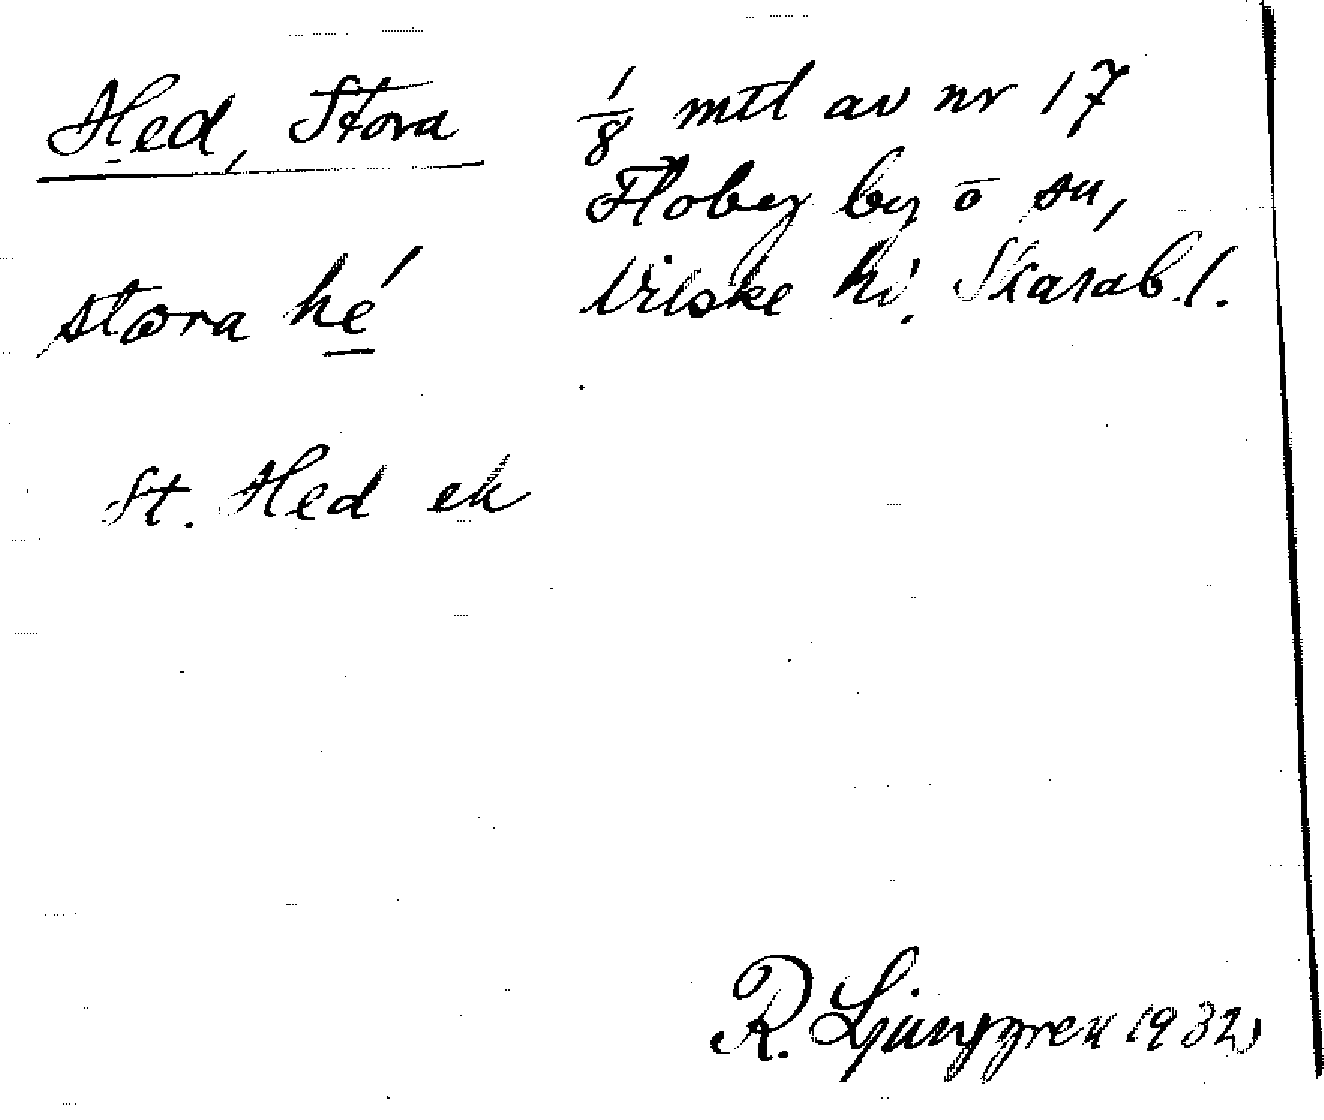 Hed, Stora
1/8 mtl av nr 17
Floby by o sn,
Vilske hd. Skarab. l.
stωra hé
St. Hed ek
R. Ljunggren 1932